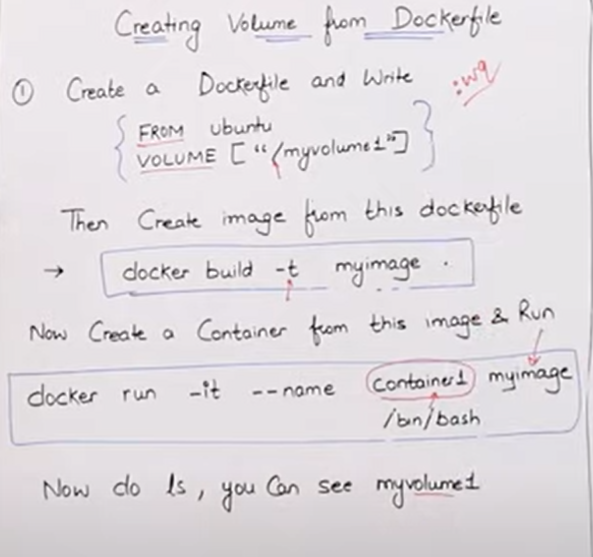 Creating Volume from Dockerfile
① Create a Dockerfile and Write :wq
{ FROM ubuntu
VOLUME ["/myvolume1"] }
Then Create image from this dockerfile
→ docker build -t myimage .
Now Create a Container from this image & Run
docker run -it --name container1 myimage
/bin/bash
Now do ls, you Can see myvolume1